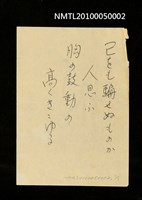 NMTL20100050002
己をも騙せぬものか
人思ふ
胸の鼓動の
高くきこゆる